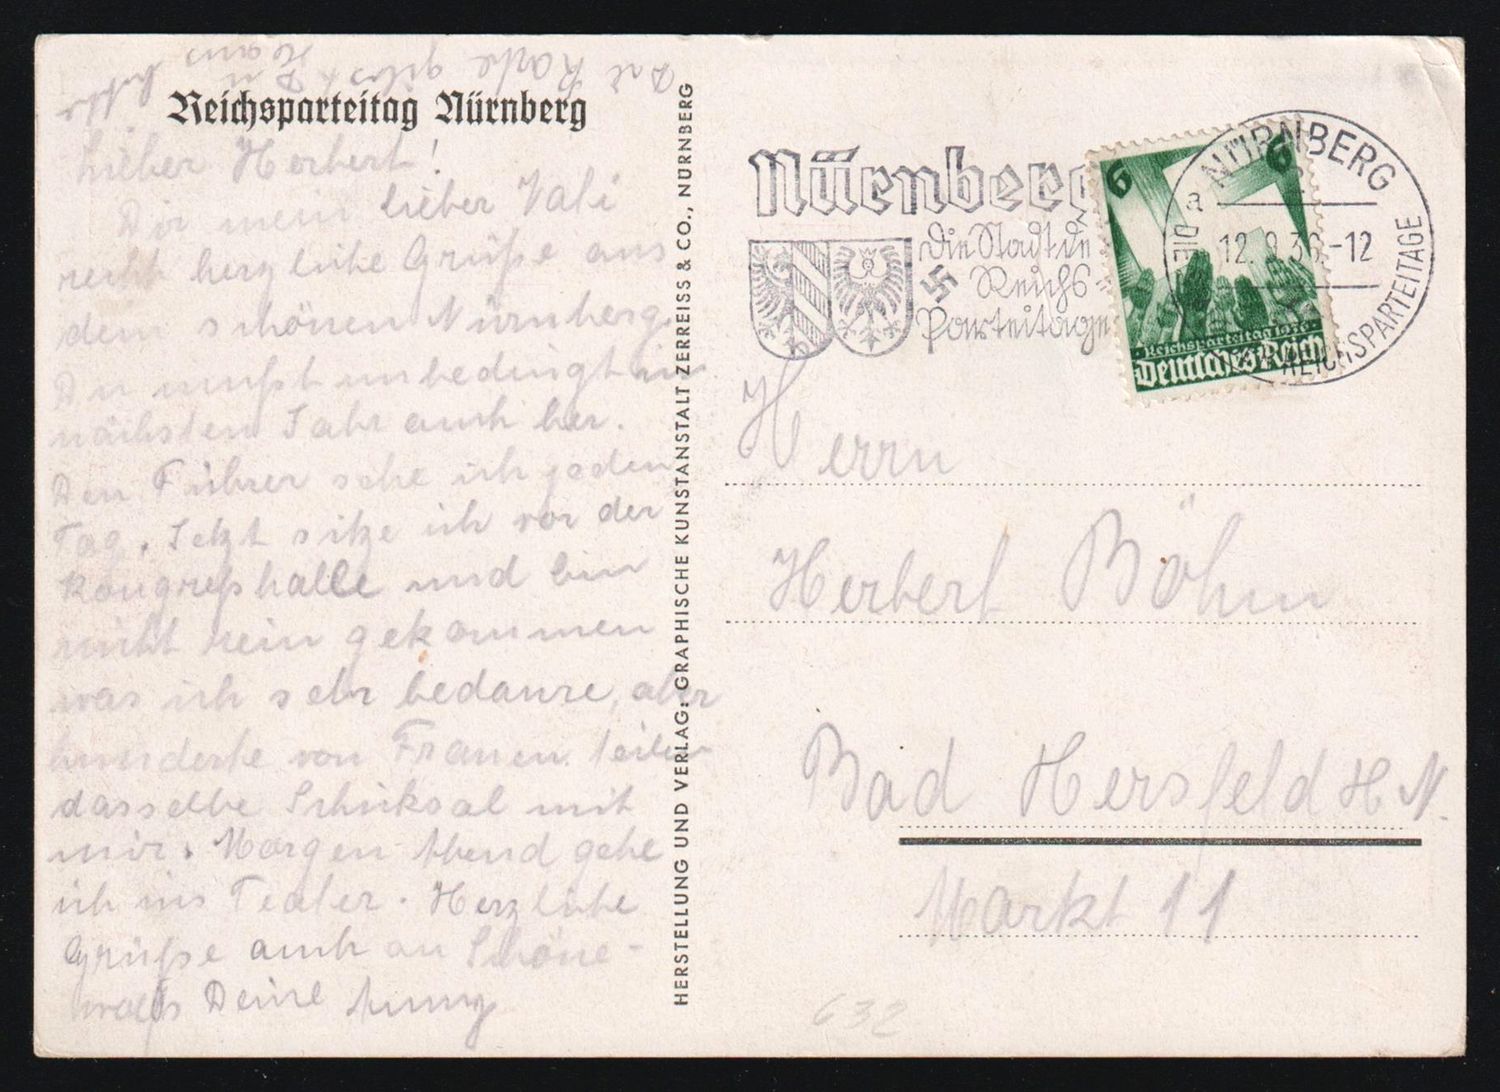 Die Karte gibst Du
Hans
Reichsparteitag Nürnberg
Lieber Herbert!
Dir mein lieber Vati
recht herzliche Grüße aus
dem schönen Nürnberg.
Du mußt unbedingt im
nächsten Jahr auch her.
Den Führer sehe ich jeden
Tag. Jetzt sitze ich vor der
Kongreßhalle und bin
nicht rein gekommen
was ich sehr bedaure, aber
hunderte von Frauen teilen
dasselbe Schicksal mit
mir. Morgen Abend gehe
ich ins Teater. Herzliche
Grüße auch an Schöne-
wolfs Deine
HERSTELLUNG UND VERLAG: GRAPHISCHE KUNSTANSTALT ZERREISS & CO., NÜRNBERG
Nürnberg
Die Stadt der
Reichs-
Parteitage
NÜRNBERG
a
12.9.36-12
DIE
REICHSPARTEITAGE
6 6
Reichsparteitag 1936
Deutsches Reich
Herrn
Herbert Böhm
Bad Hersfeld H. N.
Markt 11
632